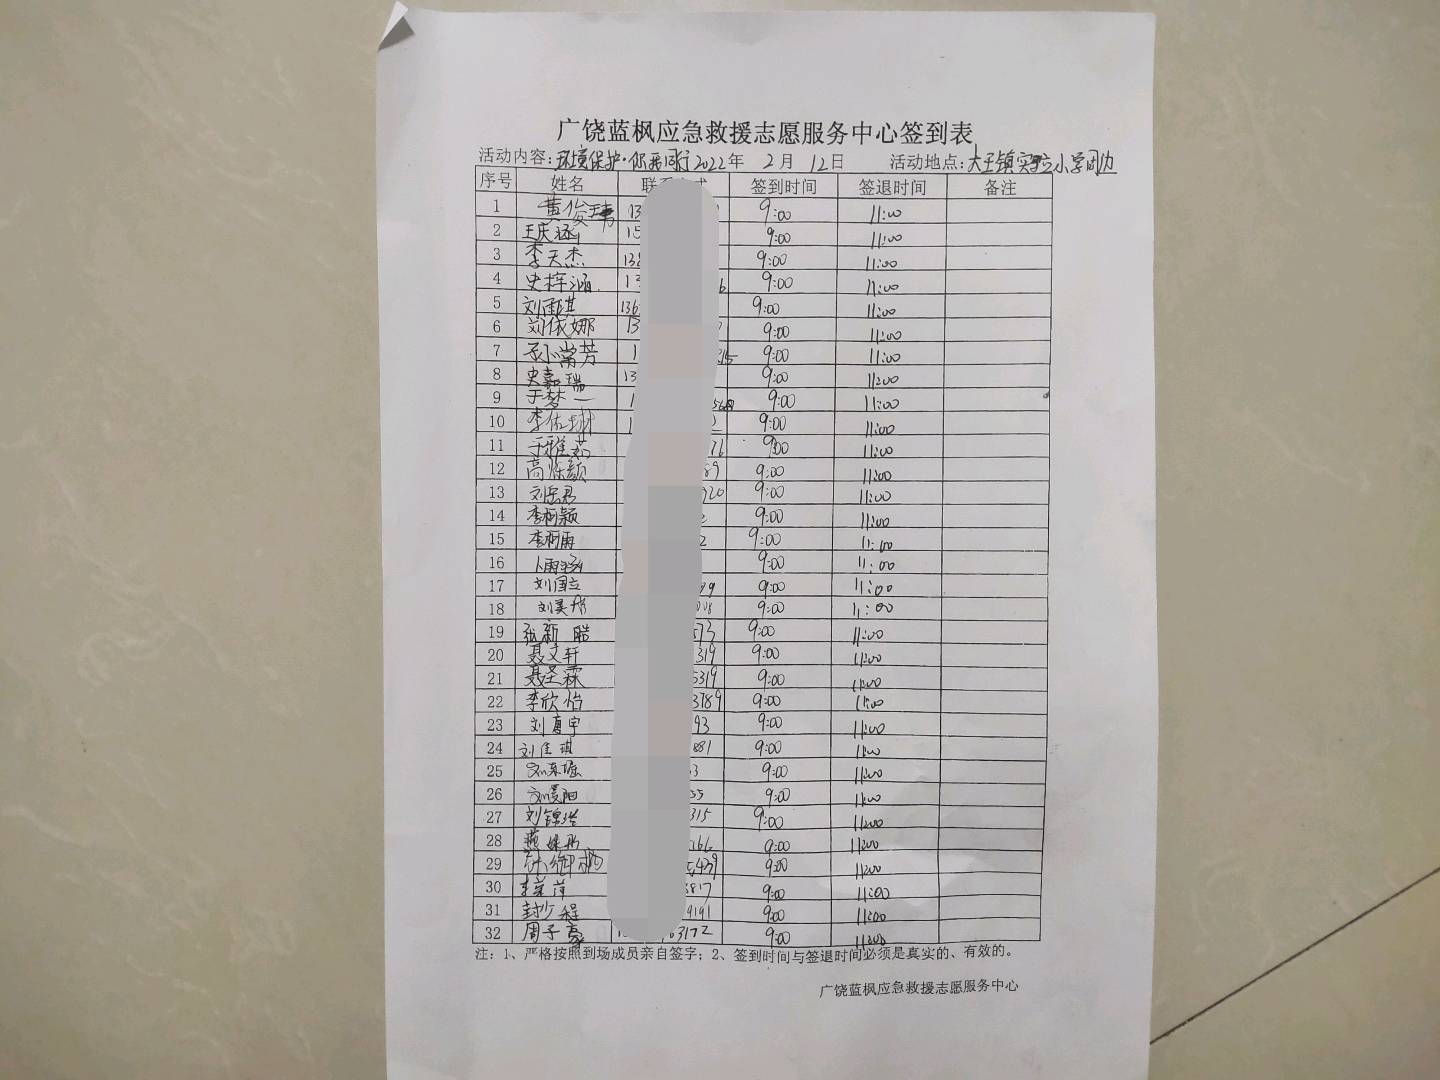 广饶蓝枫应急救援志愿服务中心签到表
活动内容：环境保护·你我同行 2022年 2月 12日 活动地点：大王镇实验小学周边
序号 姓名 签到时间 签退时间 备注
1 黄俊玮 13 9:00 11:00
2 王庆涵 15 9:00 11:00
3 李天杰 138 9:00 11:00
4 史梓涵 9:00 11:00
5 刘雨琪 136 9:00 11:00
6 刘依娜 13 9:00 11:00
7 孙常芳 1 9:00 11:00
8 史嘉瑞 13 9:00 11:00
9 于梦一 1 9:00 11:00
10 李依琳 1 9:00 11:00
11 于雅茹 76 9:00 11:00
12 高烁颜 89 9:00 11:00
13 920 9:00 11:00
14 李柯颖 9:00 11:00
15 李柯雨 2 9:00 11:00
16 9:00 11:00
17 刘国立 99 9:00 11:00
18 刘昊 9:00 11:00
19 张新皓 573 9:00 11:00
20 聂文轩 319 9:00 11:00
21 聂圣霖 5319 9:00 11:00
22 李欣怡 3789 9:00 11:00
23 刘宇 93 9:00 11:00
24 刘佳琪 881 9:00 11:00
25 3 9:00 11:00
26 阳 55 9:00 11:00
27 刘锦 315 9:00 11:00
28 燕 266 9:00 11:00
29 439 9:00 11:00
30 萍 3817 9:00 11:00
31 封少程 9191 9:00 11:00
32 周子豪 63172 9:00 11:00
注：1、严格按照到场成员亲自签字；2、签到时间与签退时间必须是真实的、有效的。
广饶蓝枫应急救援志愿服务中心